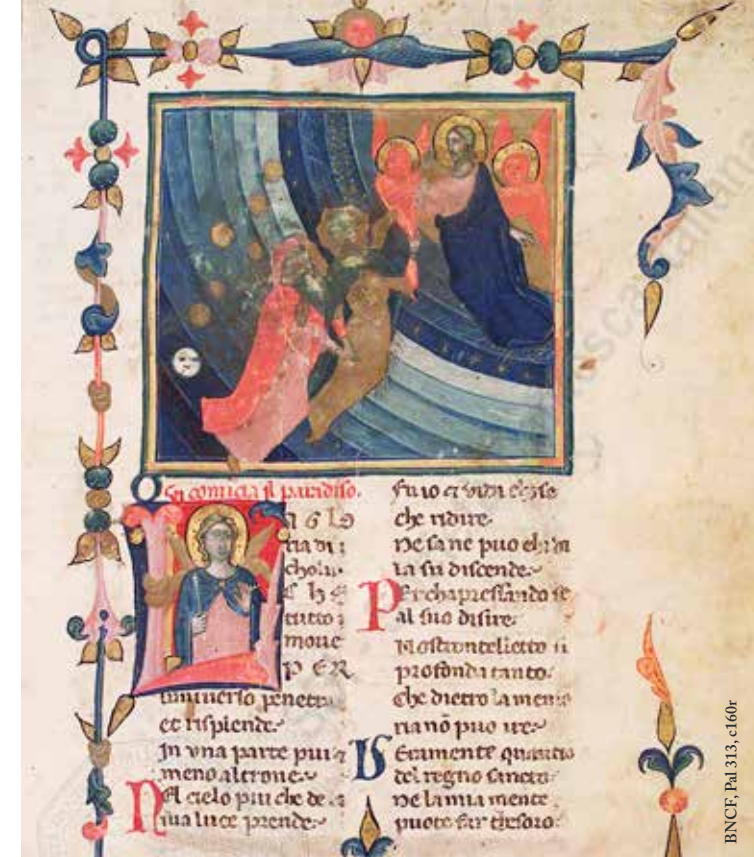 Qui comicia il paradiso.
LA GLO
ria di
cholui
CHE
tutto
moue
PER
luniuerso penetra
et risplende.
In vna parte piu
meno altroue.
Nel cielo piu che de
sua luce prende.
fu io et vidi cose
che ridire.
Ne sa ne puo
la su discende.
Perchapressando se
al suo disire.
Nostrontelletto si
profonda tanto.
Che dietro la memo
ria nō puo ire.
Veramente quanto
del regno sancto
ne la mia mente
puote far thesoro.
BNCF, Pal 313, c160r